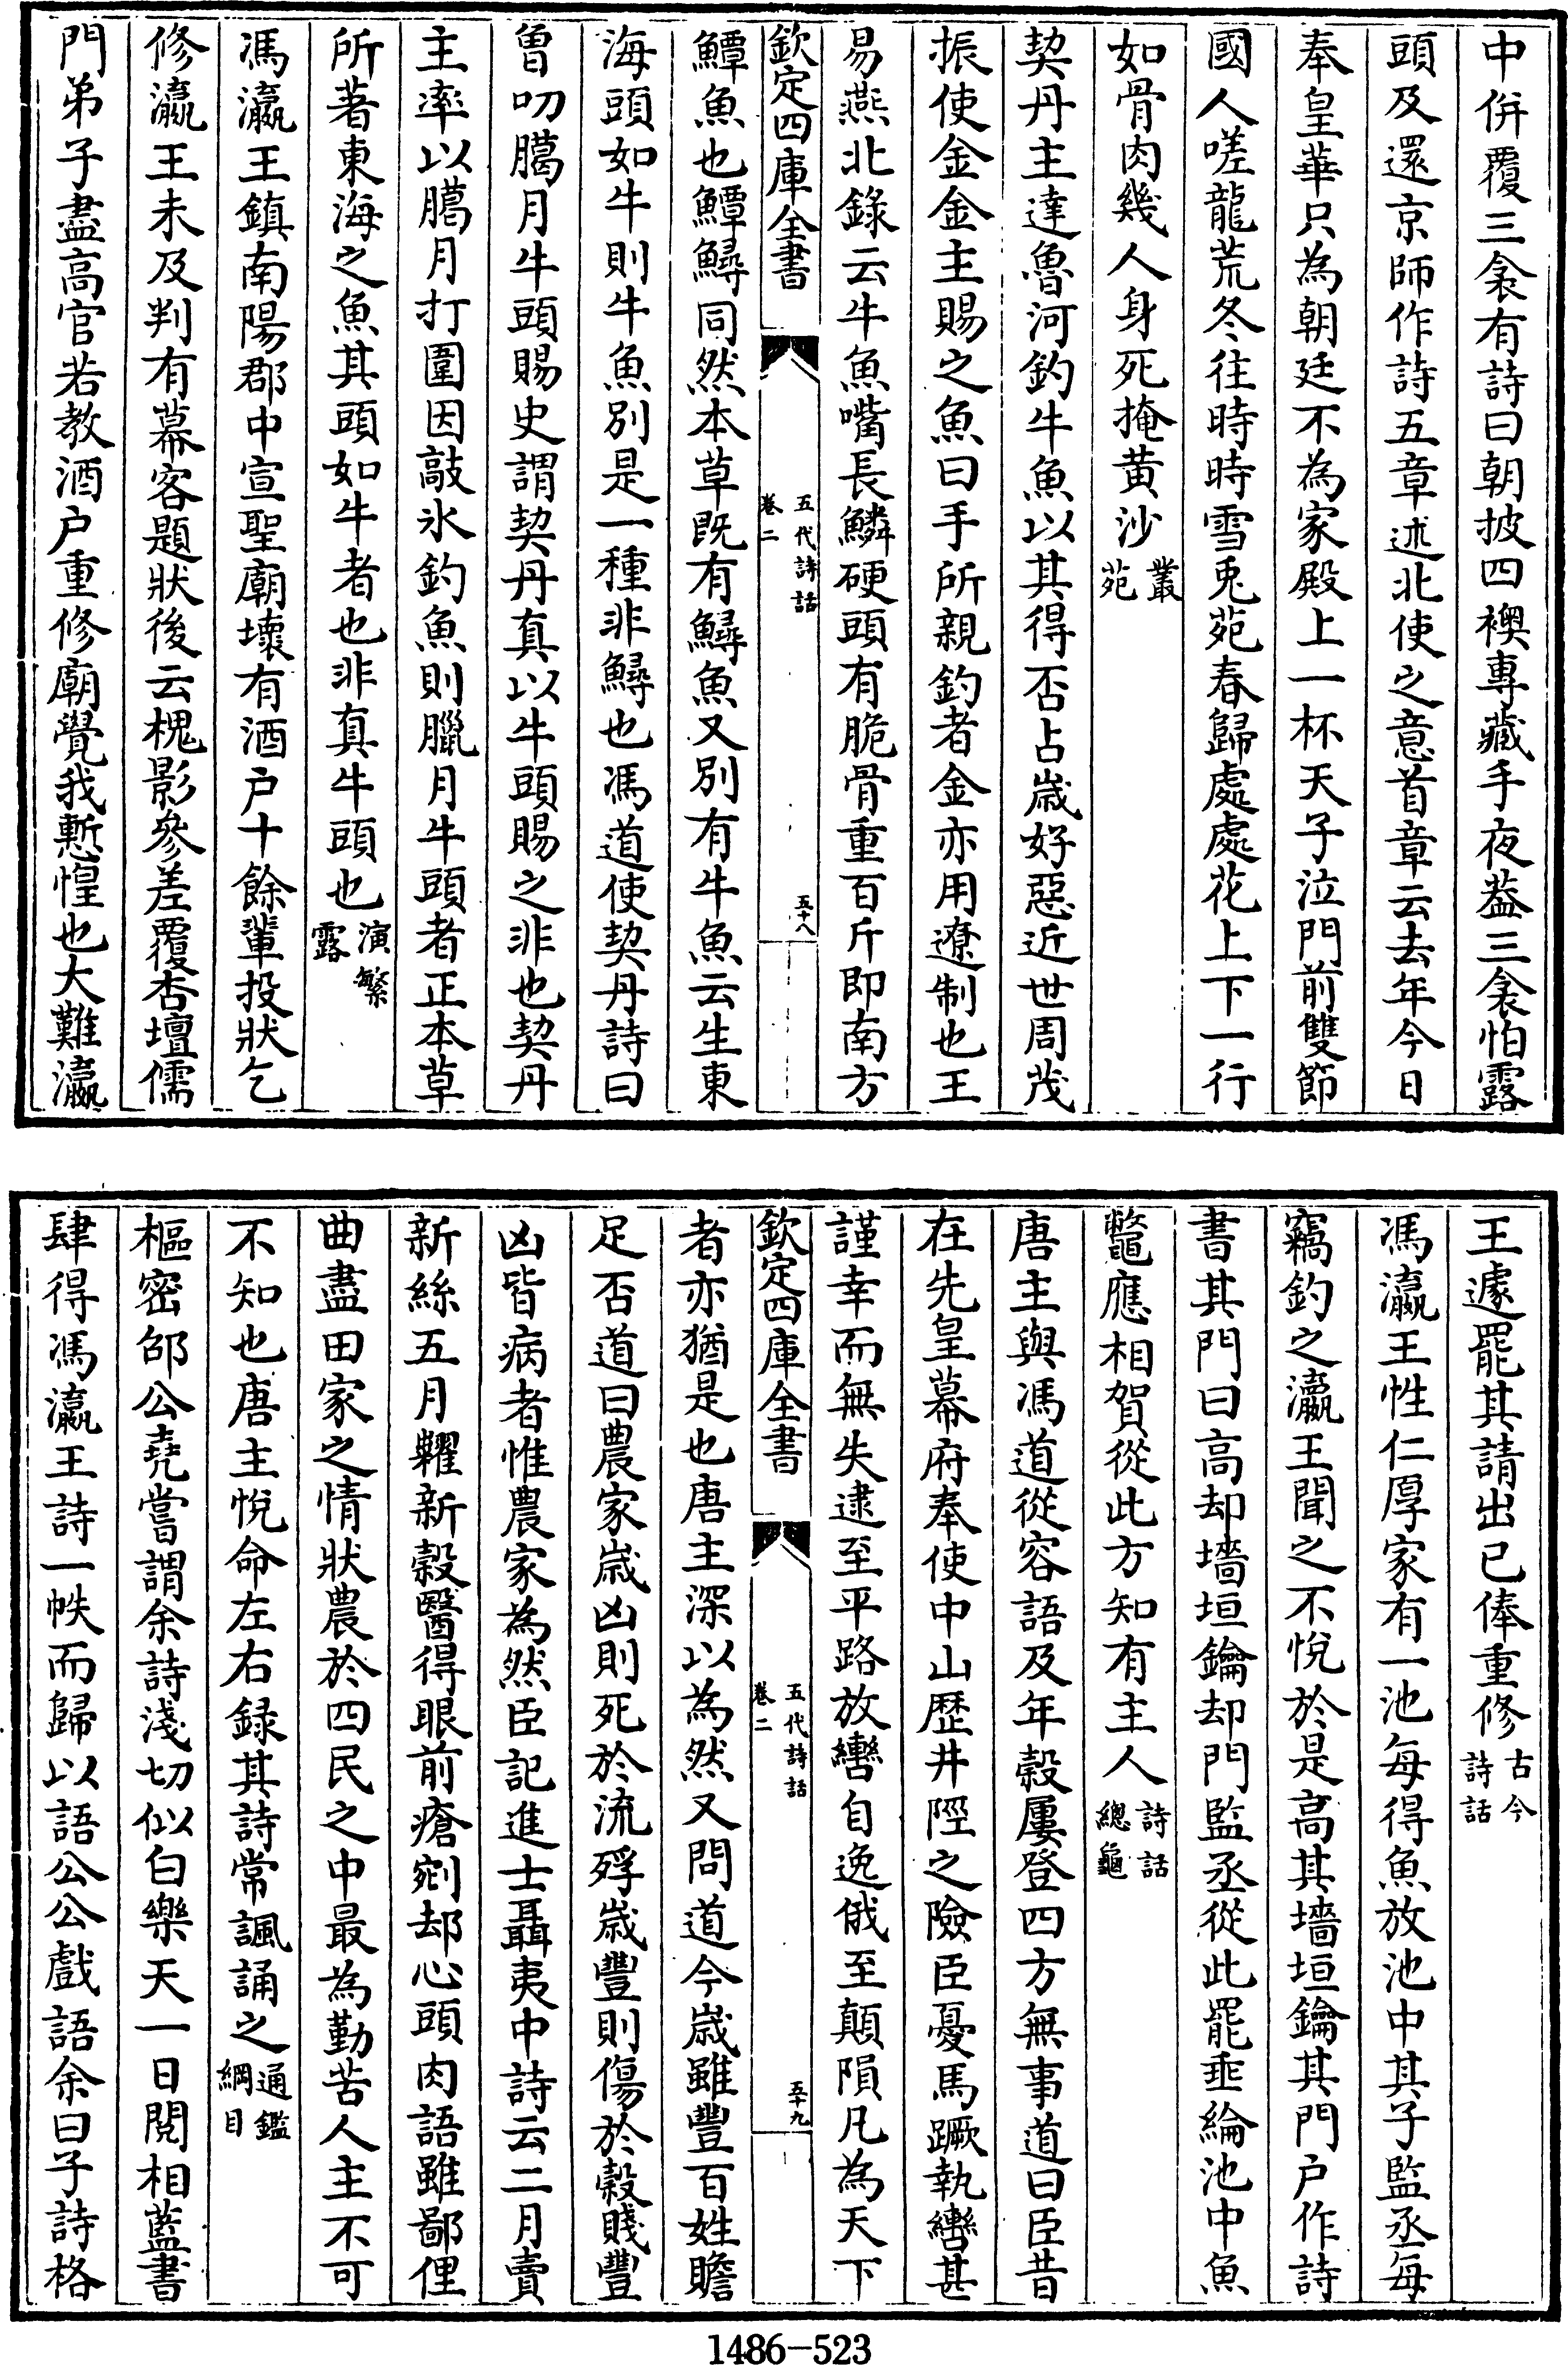 中併覆三衾有詩曰朝披四襖專藏手夜葢三衾怕露
頭及還京師作詩五章述北使之意首章云去年今日
奉皇華只為朝廷不為家殿上一杯天子泣門前雙節
國人嗟龍荒冬往時時雪兎苑春歸處處花上下一行
如骨肉幾人身死掩黄沙叢苑
契丹主達魯河釣牛魚以其得否占歳好惡近世周茂
振使金金主賜之魚曰手所親釣者金亦用遼制也王
易燕北錄云牛魚嘴長鱗硬頭有脆骨重百斤即南方
欽定四庫全書
五代詩話
卷二
五十八
鱏魚也鱏鱘同然本草既有鱘魚又別有牛魚云生東
海頭如牛則牛魚別是一種非鱘也馮道使契丹詩曰
曾叨臈月牛頭賜史謂契丹真以牛頭賜之非也契丹
主率以臈月打圍因敲氷釣魚則臘月牛頭者正本草
所著東海之魚其頭如牛者也非真牛頭也演繁露
馮瀛王鎮南陽郡中宣聖廟壞有酒户十餘輩投狀乞
修瀛王未及判有幕客題狀後云槐影參差覆杏壇儒
門弟子盡高官若教酒户重修廟覺我慙惶也大難瀛
王遽罷其請出已俸重修古今詩話
馮瀛王性仁厚家有一池每得魚放池中其子監丞每
竊釣之瀛王聞之不悅於是高其墻垣鑰其門户作詩
書其門曰高却墻垣鑰却門監丞從此罷垂綸池中魚
鼈應相賀從此方知有主人詩話總龜
唐主與馮道從容語及年穀屢登四方無事道曰臣昔
在先皇幕府奉使中山歷井陘之險臣憂馬蹶執轡甚
謹幸而無失逮至平路放轡自逸俄至顛隕凡為天下
欽定四庫全書
五代詩話
卷二
五十九
者亦猶是也唐主深以為然又問道今歳雖豐百姓贍
足否道曰農家歳凶則死於流殍歳豐則傷於穀賤豐
凶皆病者惟農家為然臣記進士聶夷中詩云二月賣
新絲五月糶新穀醫得眼前瘡剜却心頭肉語雖鄙俚
曲盡田家之情狀農於四民之中最為勤苦人主不可
不知也唐主悅命左右録其詩常諷誦之通鑑綱目
樞密邵公堯嘗謂余詩淺切似白樂天一日閱相藍書
肆得馮瀛王詩一帙而歸以語公公戲語余曰子詩格
1486-523